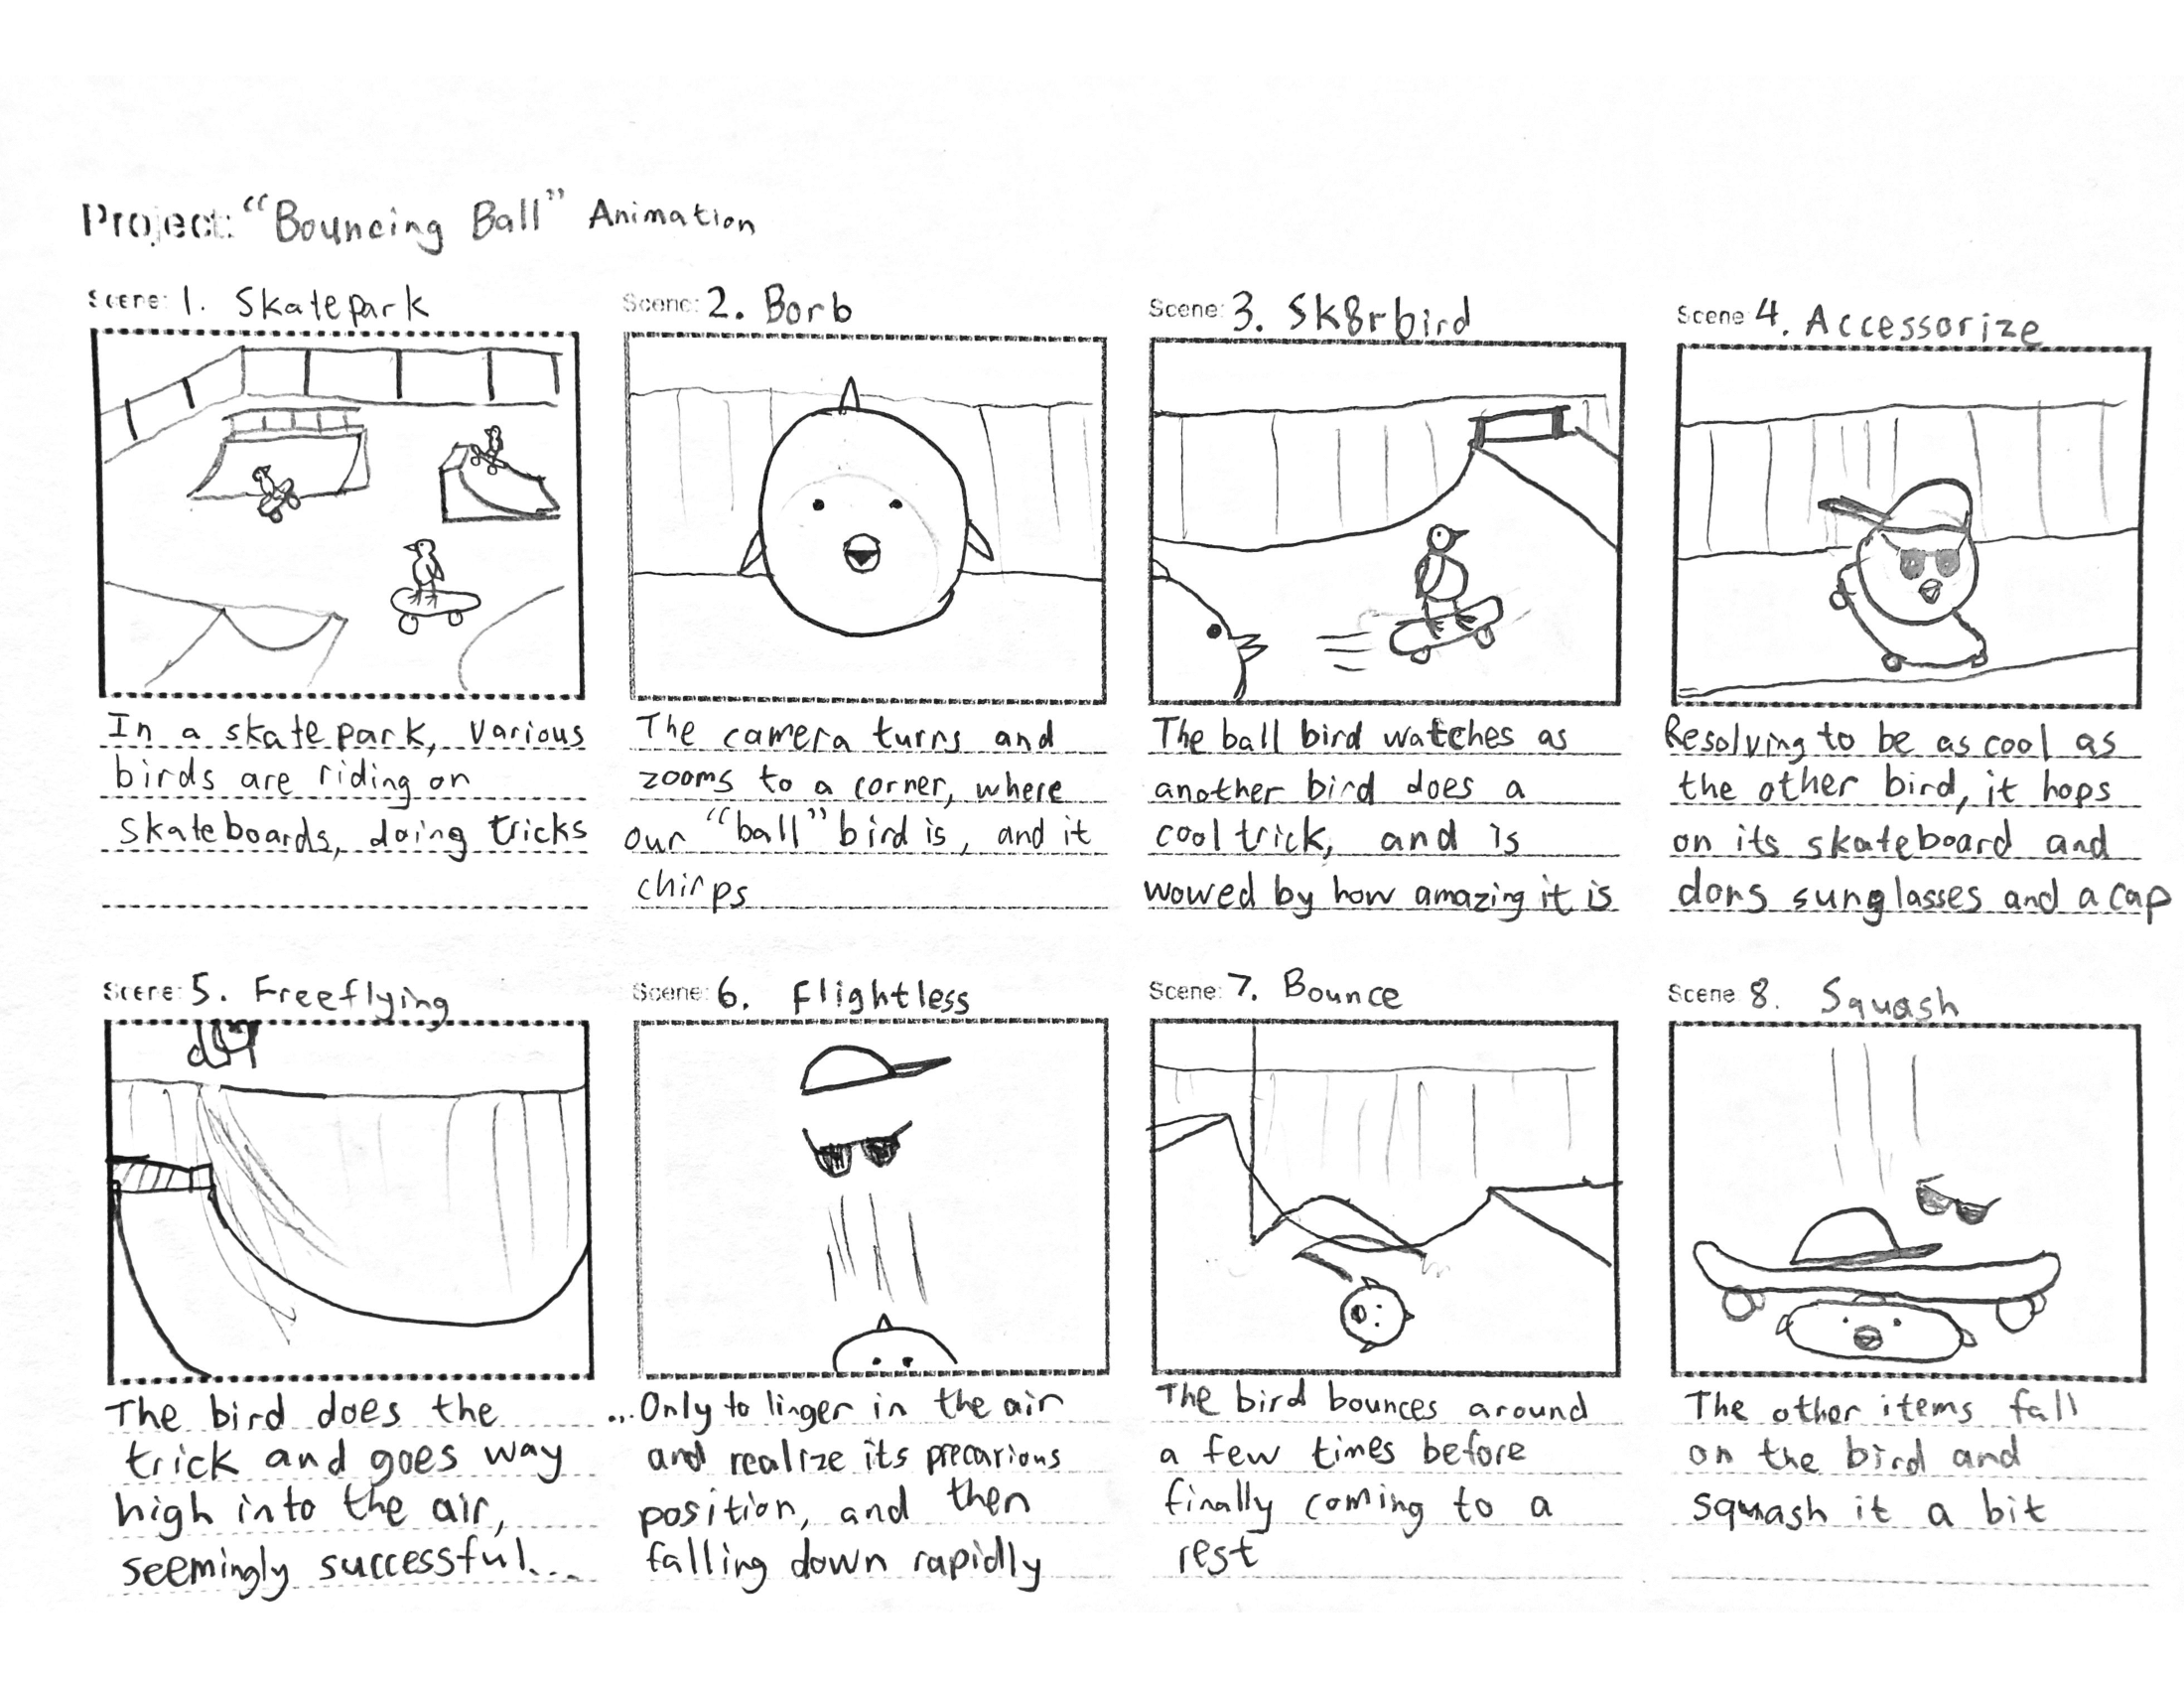 Project: "Bouncing Ball" Animation
Scene: 1. Skatepark
In a skate park, various
birds are riding on
skateboards, doing tricks
Scene: 2. Borb
The camera turns and
zooms to a corner, where
our "ball" bird is, and it
chirps
Scene: 3. Sk8rbird
The ball bird watches as
another bird does a
cool trick, and is
wowed by how amazing it is
Scene: 4. Accessorize
Resolving to be as cool as
the other bird, it hops
on its skateboard and
dons sunglasses and a cap
Scene: 5. Freeflying
The bird does the
trick and goes way
high into the air,
seemingly successful...
Scene: 6. Flightless
...Only to linger in the air
and realize its precarious
position, and then
falling down rapidly
Scene: 7. Bounce
The bird bounces around
a few times before
finally coming to a
rest
Scene 8. Squash
The other items fall
on the bird and
squash it a bit